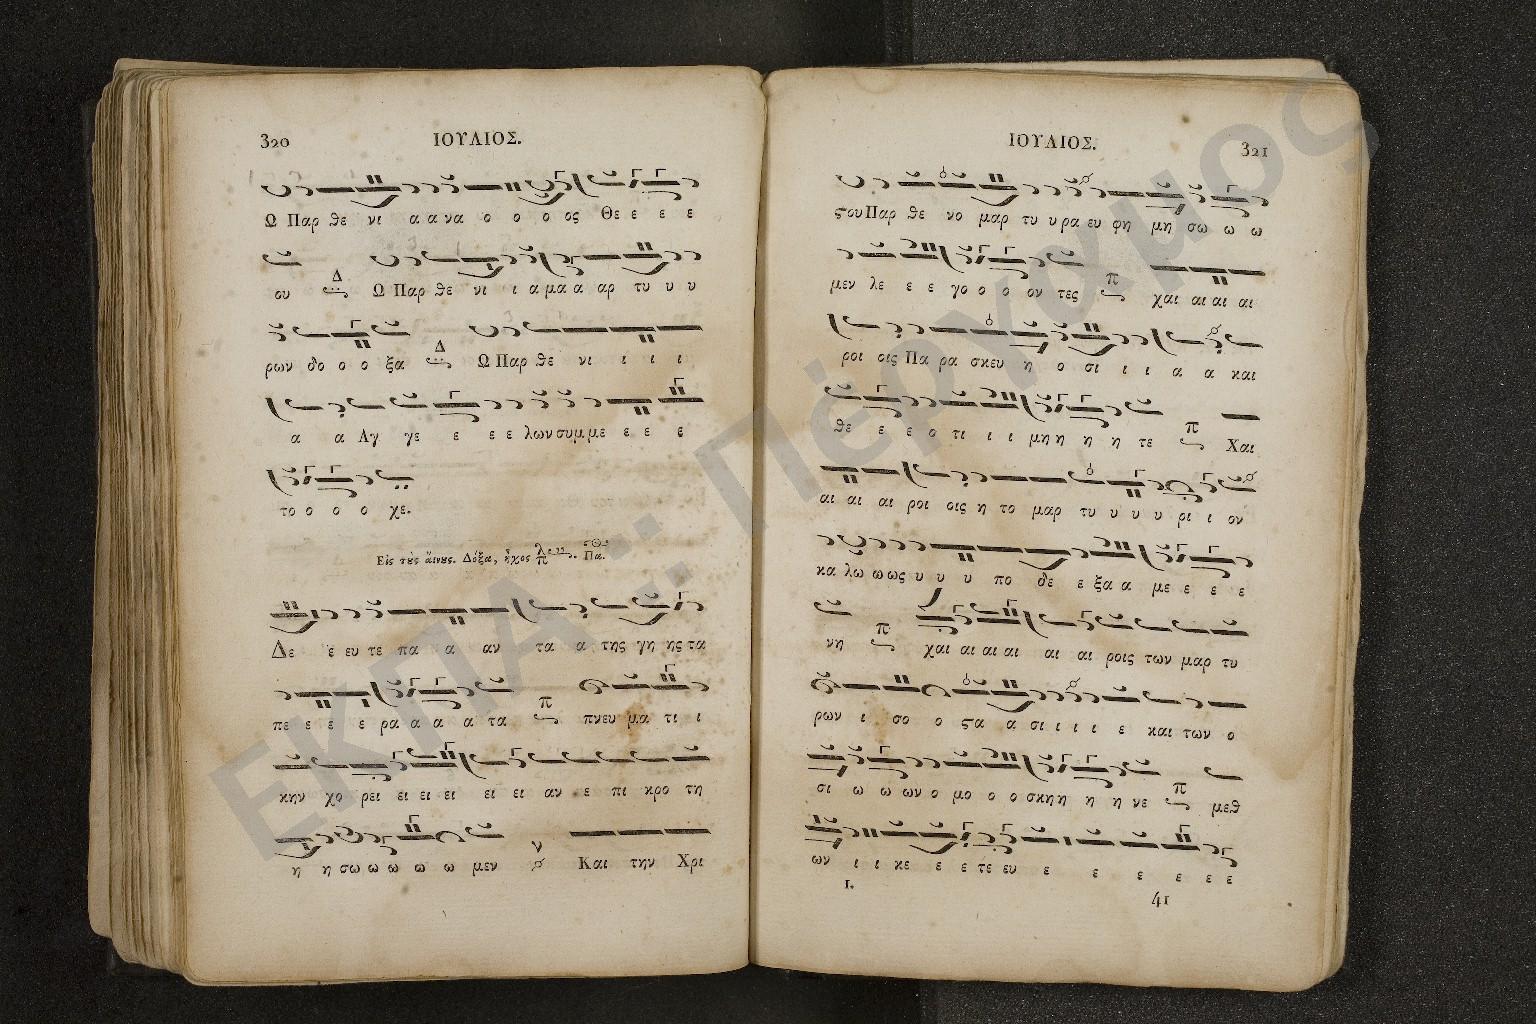 320 ΙΟΥΛΙΟΣ.
Ω Παρ θε νι α α να ο ο ο ος Θε ε ε ε
ου Δ Ω Παρ θε νι ι α μα α αρ τυ υ υ
ρων δο ο ο ξα Δ Ω Παρ θε νι ι ι ι
α α Αγ γε ε ε ε λων συμ με ε ε ε
το ο ο ο χε.
Εἰς τοὺς αἴνους. Δόξα, ἦχος Πα.
Δε ε ευ τε πα α αν τα α της γη ης τα
πε ε ε ε ρα α α α τα π πνευ μα τι ι
κην χο ρει ει ει ει ει ει αν ε πι κρο τη
η η σω ω ω ω ω μεν ν Και την Χρι
ΙΟΥΛΙΟΣ. 321
ϛου Παρ θε νο μαρ τυ υ ρα ευ φη μη σω ω ω
μεν λε ε ε γο ο ο ον τες π χαι αι αι αι
ροι οις Πα ρα σκευ η ο σι ι ι α α και
θε ε ε ο τι ι ι μη η η η τε π Χαι
αι αι αι ροι οις η το μαρ τυ υ υ υ ρι ι ον
κα λω ω ως υ υ υ πο δε ε ξα α με ε ε ε
νη π χαι αι αι αι αι αι ροις των μαρ τυ
ρων ι σο ο ϛα α σι ι ι ι ε και των ο
σι ω ω ων ο μο ο ο σκη η η η νε π μεθ
ων ι ι κε ε ε τε ευ ε ε ε ε ε ε
1. 41
ΕΚΠΑ :: Πέργαμος